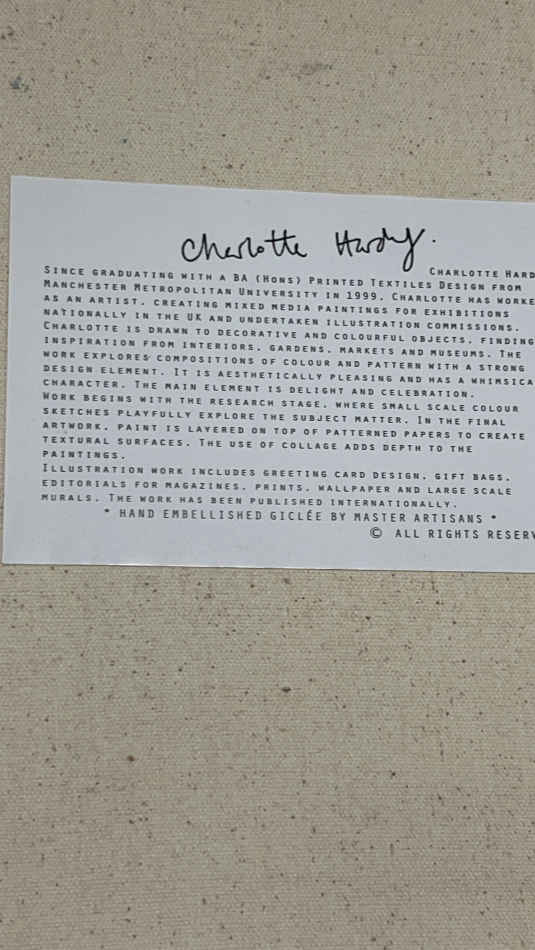 Charlotte Hardy.
CHARLOTTE HARD
SINCE GRADUATING WITH A BA (HONS) PRINTED TEXTILES DESIGN FROM
MANCHESTER METROPOLITAN UNIVERSITY IN 1999. CHARLOTTE HAS WORKE
AS AN ARTIST. CREATING MIXED MEDIA PAINTINGS FOR EXHIBITIONS
NATIONALLY IN THE UK AND UNDERTAKEN ILLUSTRATION COMMISSIONS.
CHARLOTTE IS DRAWN TO DECORATIVE AND COLOURFUL OBJECTS. FINDING
INSPIRATION FROM INTERIORS. GARDENS. MARKETS AND MUSEUMS. THE
WORK EXPLORES COMPOSITIONS OF COLOUR AND PATTERN WITH A STRONG
DESIGN ELEMENT. IT IS AESTHETICALLY PLEASING AND HAS A WHIMSICA
CHARACTER. THE MAIN ELEMENT IS DELIGHT AND CELEBRATION.
WORK BEGINS WITH THE RESEARCH STAGE. WHERE SMALL SCALE COLOUR
SKETCHES PLAYFULLY EXPLORE THE SUBJECT MATTER. IN THE FINAL
ARTWORK. PAINT IS LAYERED ON TOP OF PATTERNED PAPERS TO CREATE
TEXTURAL SURFACES. THE USE OF COLLAGE ADDS DEPTH TO THE
PAINTINGS.
ILLUSTRATION WORK INCLUDES GREETING CARD DESIGN. GIFT BAGS.
EDITORIALS FOR MAGAZINES. PRINTS. WALLPAPER AND LARGE SCALE
MURALS. THE WORK HAS BEEN PUBLISHED INTERNATIONALLY.
* HAND EMBELLISHED GICLÉE BY MASTER ARTISANS *
© ALL RIGHTS RESERV